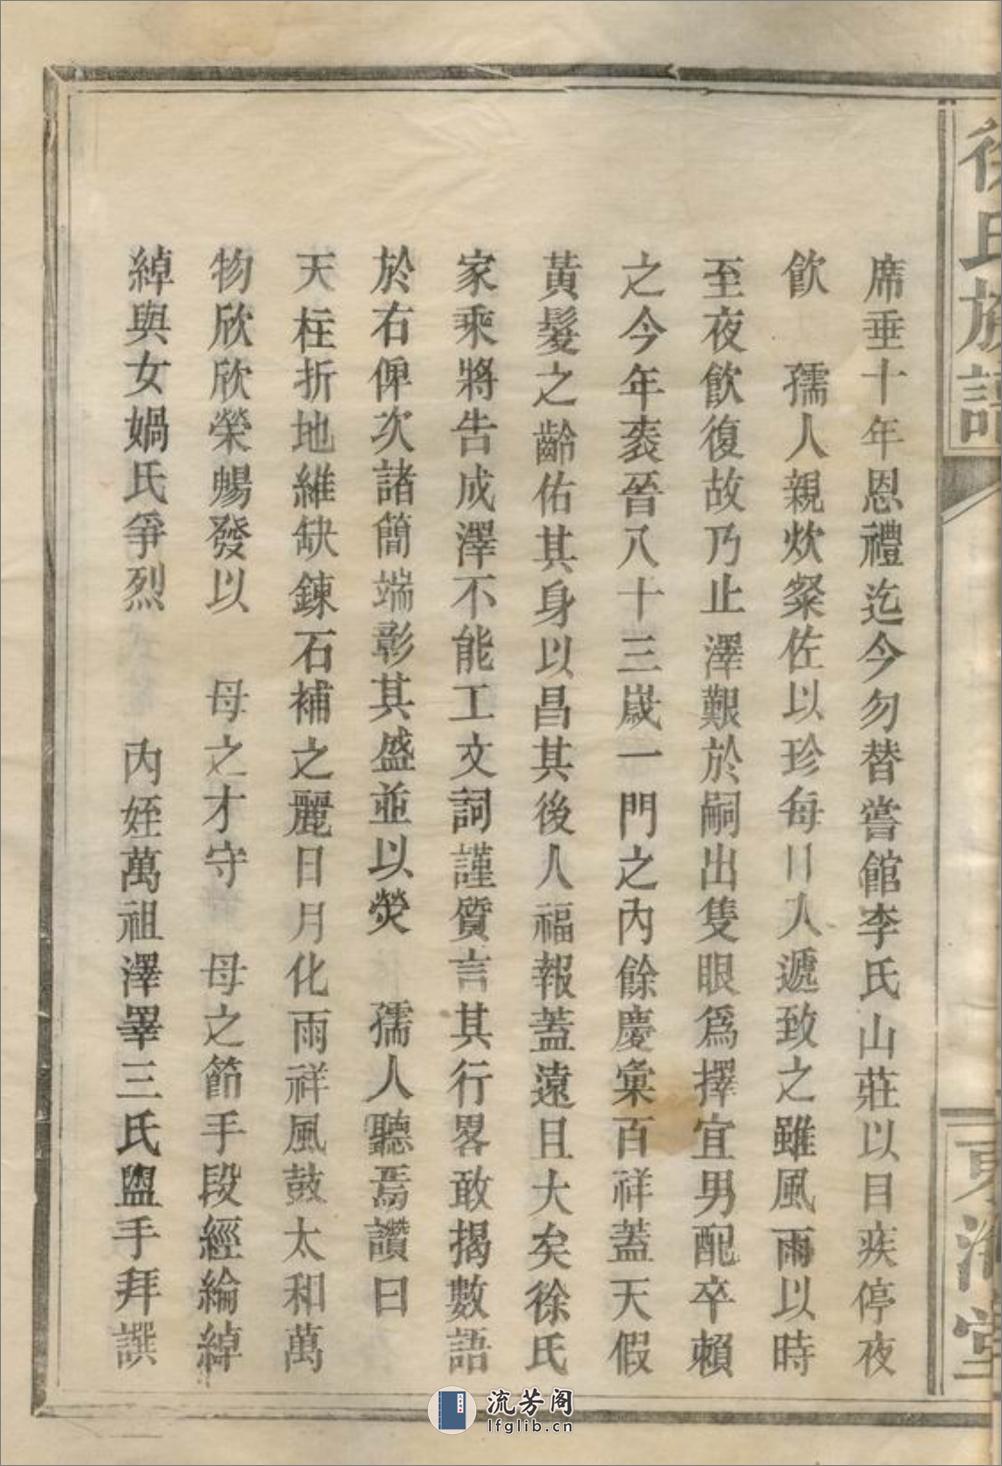 徐氏族譜
東海堂
席垂十年恩禮迄今勿替嘗館李氏山莊以目疾停夜
飮　孺人親炊粲佐以珍每日入遞致之雖風雨以時
至夜飮復故乃止澤艱於嗣出隻眼爲擇宜男配卒賴
之今年袠晉八十三歲一門之內餘慶彙百祥蓋天假
黃髮之齡佑其身以昌其後人福報蓋遠且大矣徐氏
家乘將告成澤不能工文詞謹質言其行畧敢揭數語
於右俾次諸簡端彰其盛並以熒　孺人聽焉讚曰
天柱折地維缺鍊石補之麗日月化雨祥風鼓太和萬
物欣欣榮暢發以　母之才守　母之節手段經綸綽
綽與女媧氏爭烈　內姪萬祖澤睪三氏盥手拜譔
流芳阁
lfglib.cn